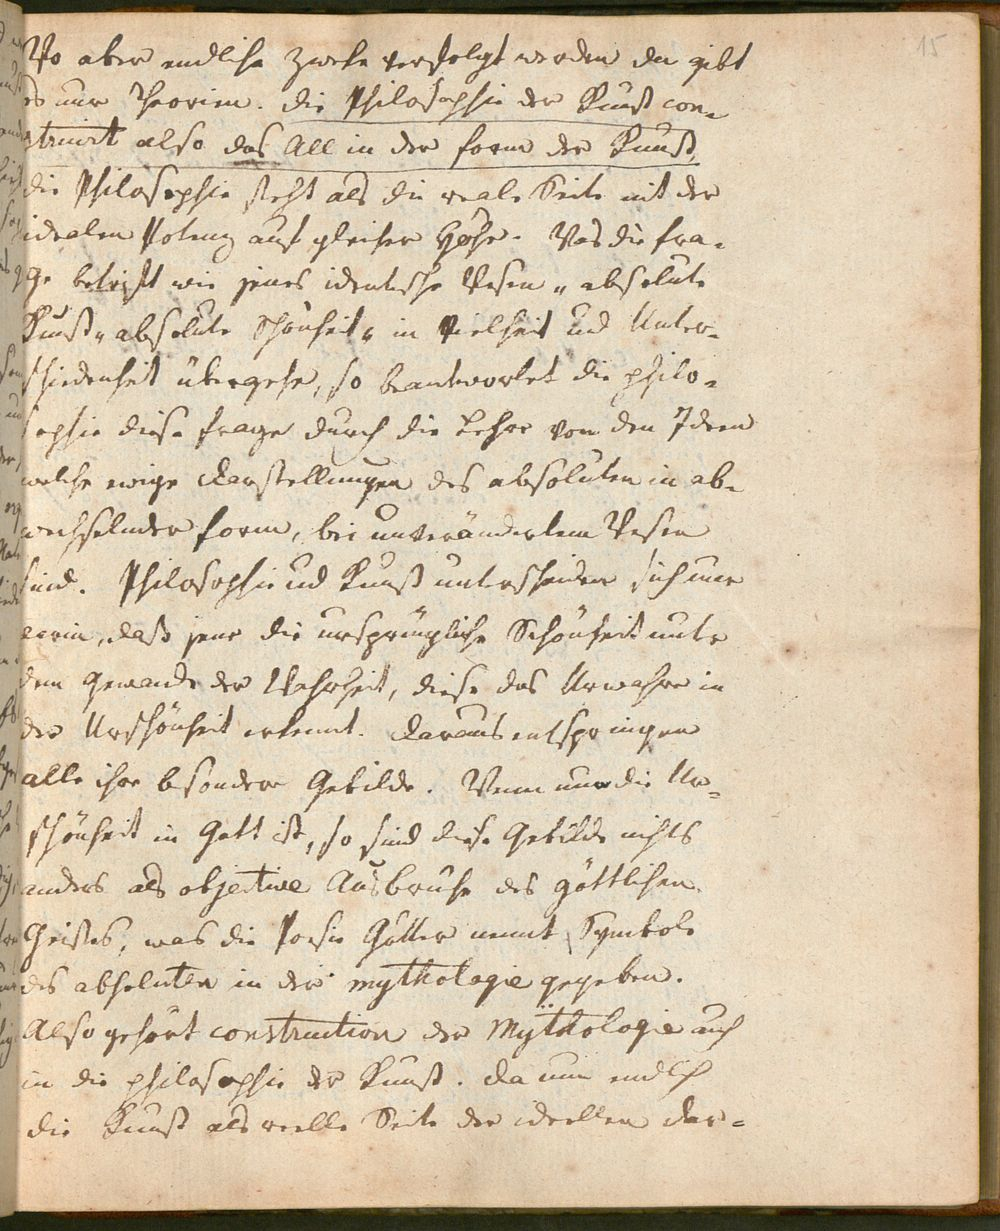 15
Wo aber endliche Zwecke verfolgt werden da gibt
es nur Theorien. die Philosophie der Kunst con-
struirt also das All in der form der Kunst,
die Philosophie steht als die reale Seite mit der
idealen Potenz auf gleicher Höhe. Was die fra-
ge betrift wie jenes identische Wesen „ absolute
Kunst „ absolute Schönheit „ in Vielheit und Unter-
schiedenheit übergehe, so beantwortet die philo-
sophie diese frage durch die Lehre von den Ideen
welche ewige darstellungen des absoluten in ab-
wechselnder form, bei unverändertem Wesen
sind. Philosophie und Kunst unterscheiden sich nur
darin, daß jene die ursprüngliche Schönheit unter
dem Gewande der Wahrheit, diese das Urwahre in
der Urschönheit erkennt. daraus entspringen
alle ihre besondere Gebilde. Wenn nun die Ur-
schönheit in Gott ist, so sind diese Gebilde nichts
anders als objective Ausbrüche des göttlichen
Geistes, was die Poesie Götter nennt, Symbole
des absoluten in der mythologie gegeben.
Also gehört construction der Mÿthologie auch
in die philosophie der Kunst. da nun endlich
die Kunst als reelle Seite der ideellen dar-